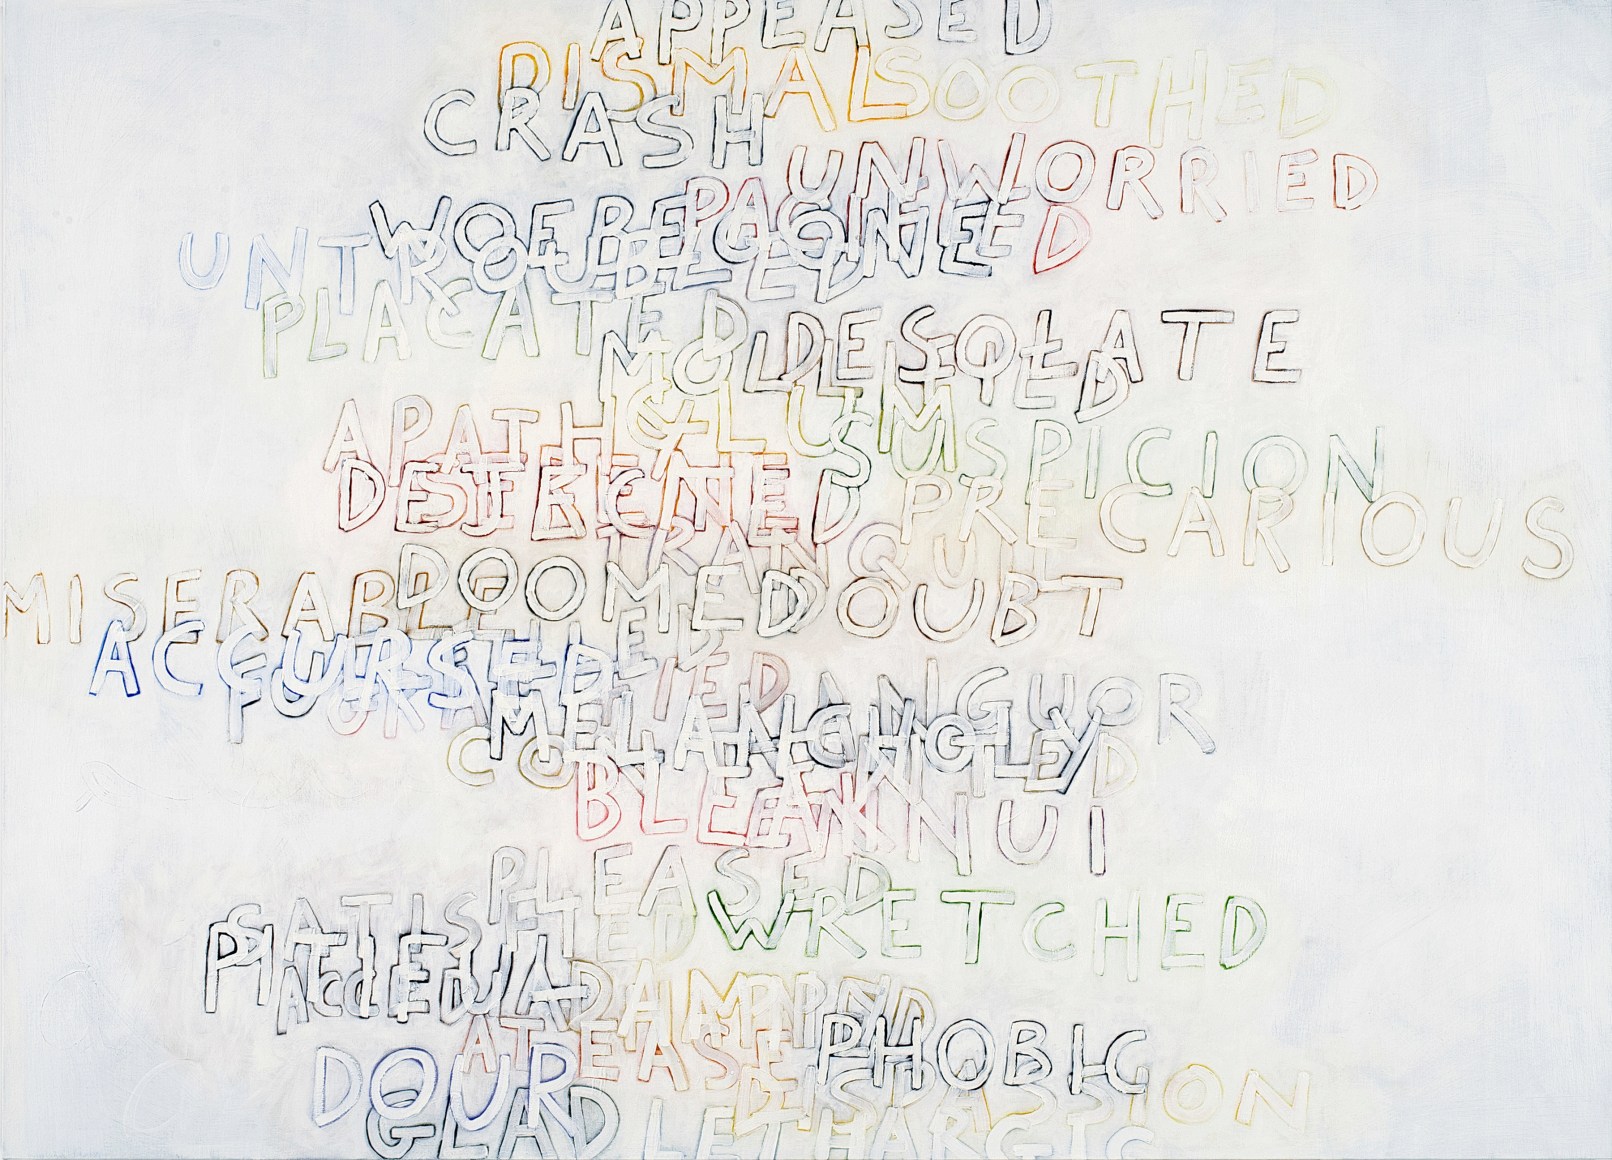 APPEASED
DISMAL SOOTHED
CRASH
UNWORRIED
PACIFIED
WOEBEGONE
UNTROUBLED
PLACATED
DESOLATE
MOLLIFIED
GLUM
APATHY
SUSPICION
DEJECTED
PRECARIOUS
TRANQUIL
DOOMED
DOUBT
MISERABLE
ACCURSED
LANGUOR
MELANCHOLY
BLEAK
ENNUI
PLEASED
SATISFIED
WRETCHED
PITIFUL
PHOBIC
AT EASE
DOUR
GLAD
LETHARGIC